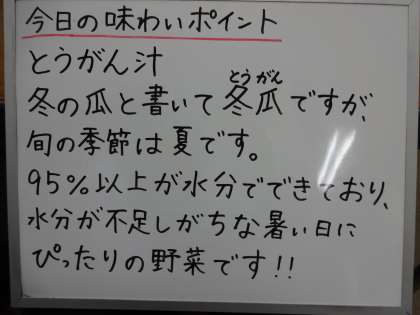 今日の味わいポイント
とうがん汁
とうがん
冬の瓜と書いて冬瓜ですが、
旬の季節は夏です。
95%以上が水分でできており、
水分が不足しがちな暑い日に
ぴったりの野菜です!!